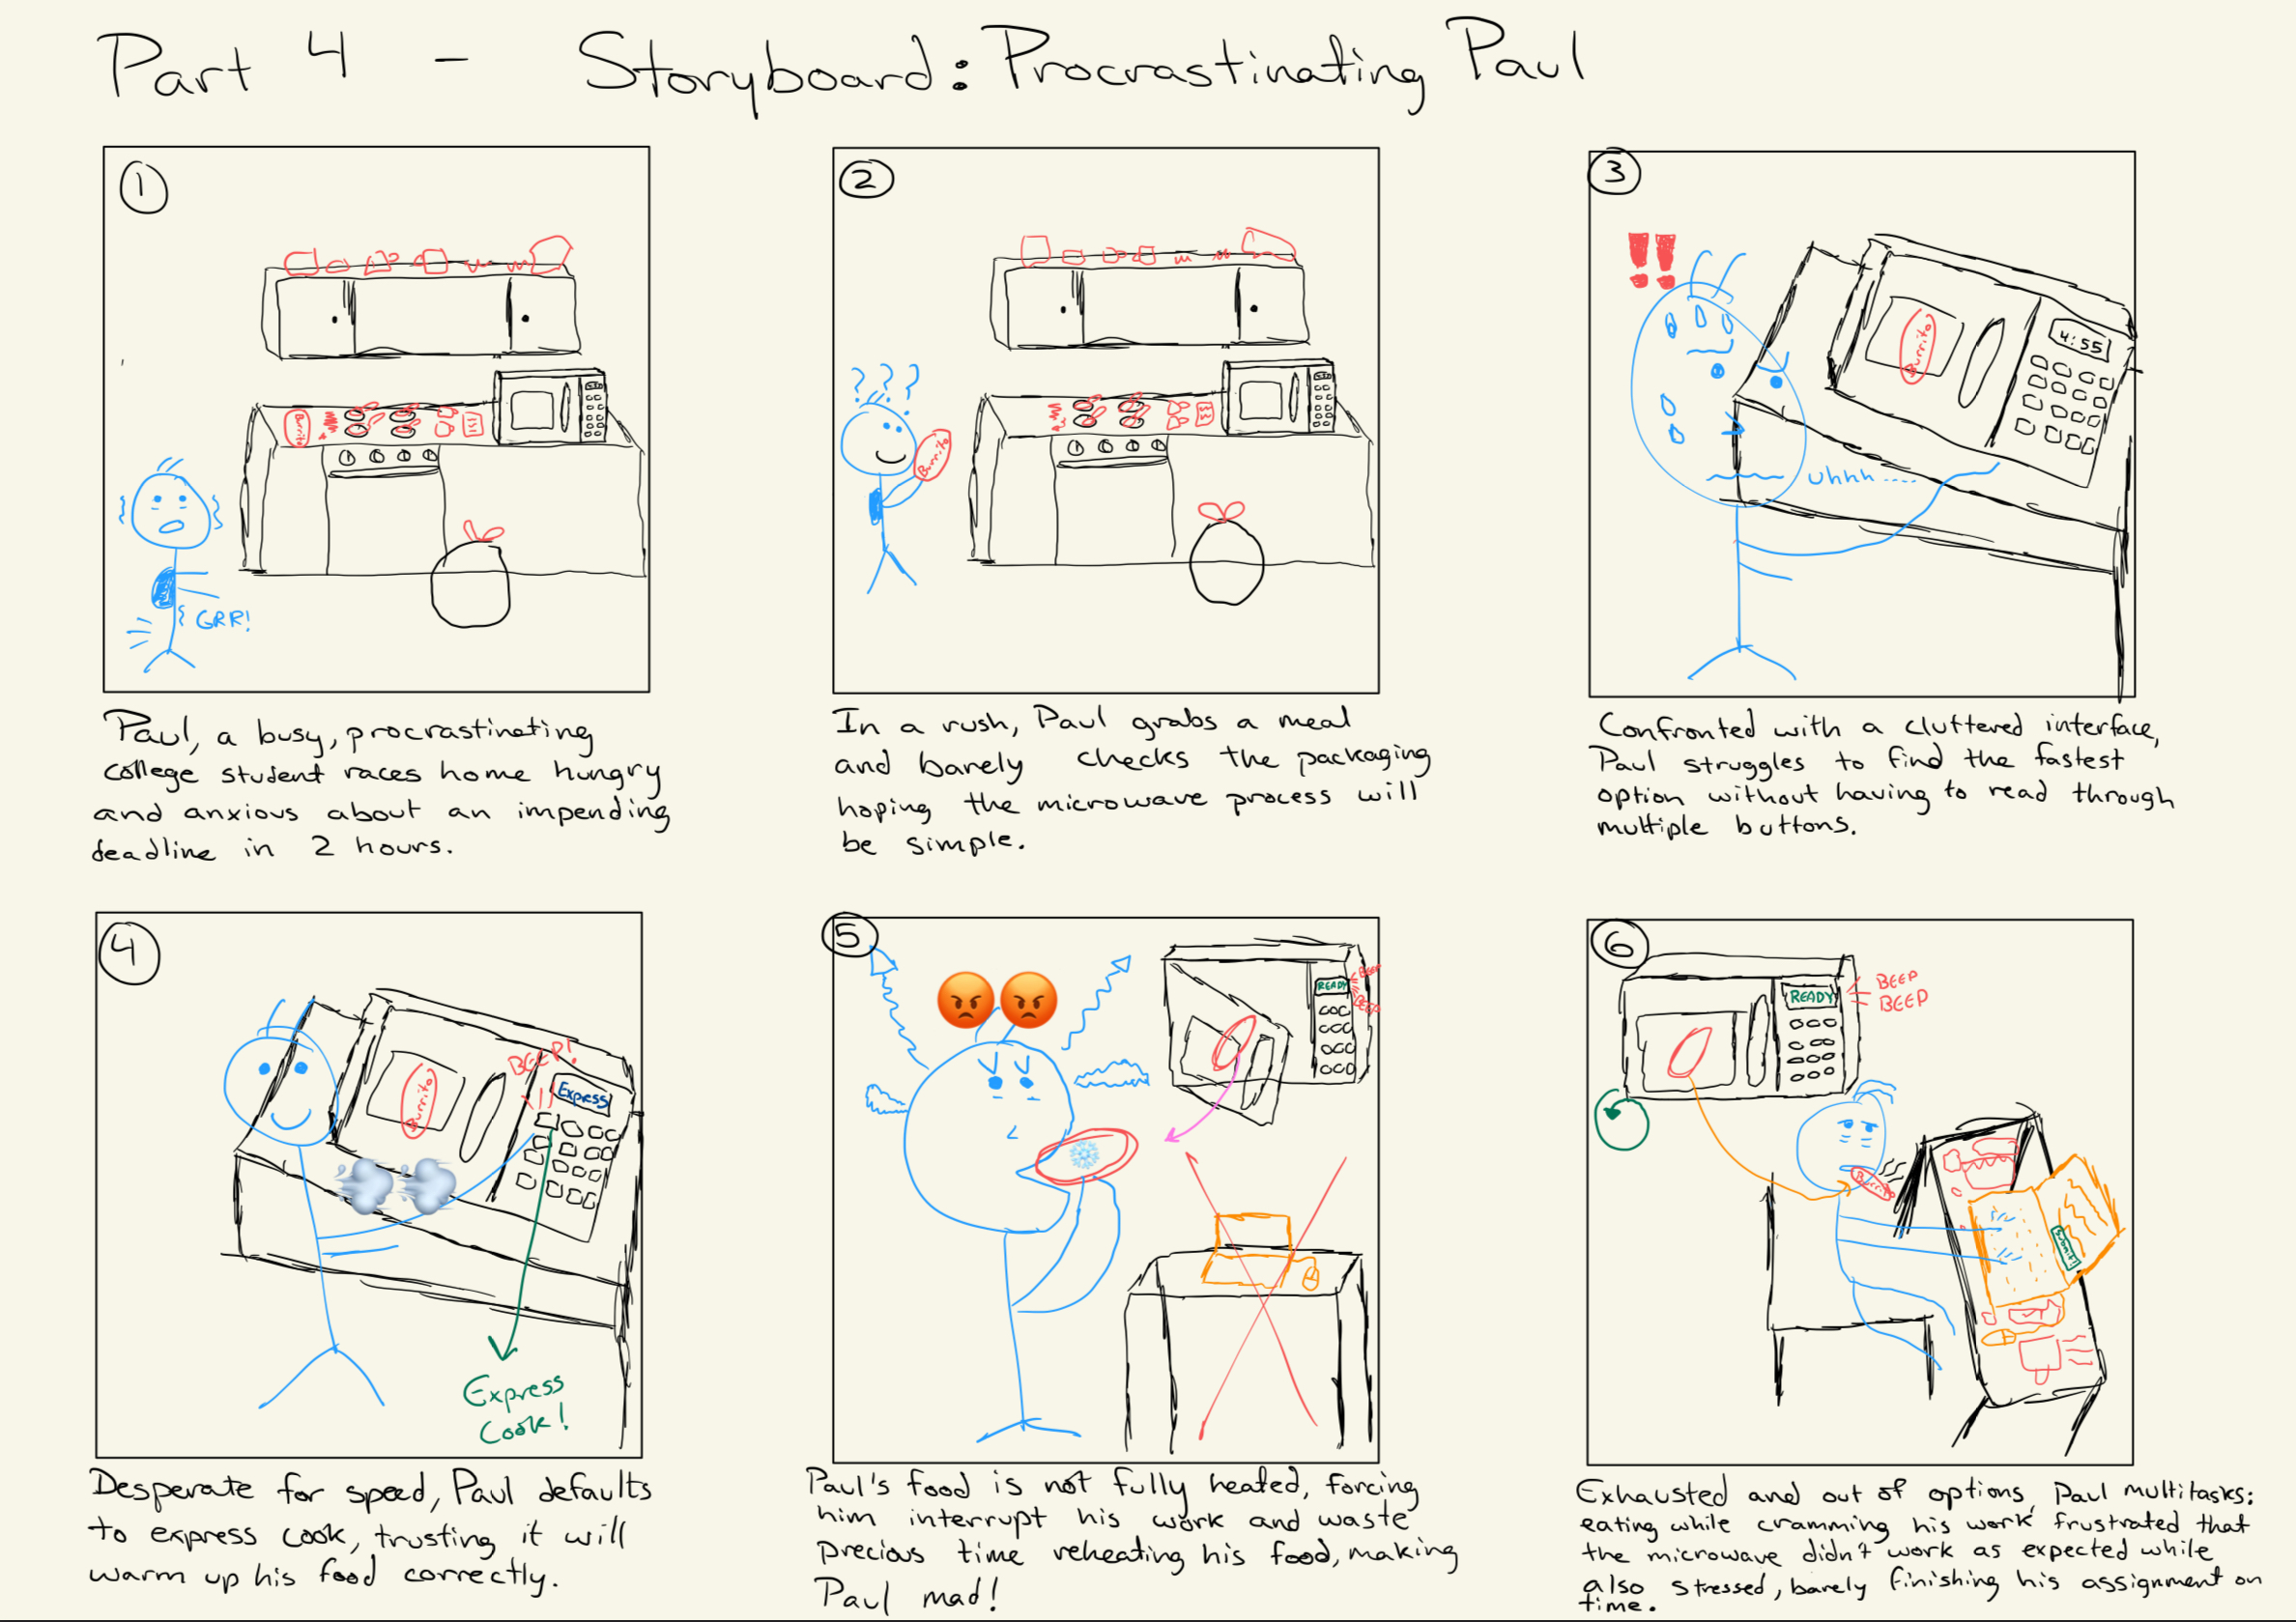 Part 4 - Storyboard: Procrastinating Paul
1
Burrito
GRR!
Paul, a busy, procrastinating
college student races home hungry
and anxious about an impending
deadline in 2 hours.
2
???
Burrito
In a rush, Paul grabs a meal
and barely checks the packaging
hoping the microwave process will
be simple.
3
!!
Burrito
4:55
Uhhh.....
Confronted with a cluttered interface,
Paul struggles to find the fastest
option without having to read through
multiple buttons.
4
BEEP!
Express
Burrito
Express
Cook!
Desperate for speed, Paul defaults
to express cook, trusting it will
warm up his food correctly.
5
READY
BEEP
BEEP
Paul's food is not fully heated, forcing
him interrupt his work and waste
precious time reheating his food, making
Paul mad!
6
READY
BEEP
BEEP
Burrito
Submit
Exhausted and out of options, Paul multitasks:
eating while cramming his work frustrated that
the microwave didn't work as expected while
also stressed, barely finishing his assignment on
time.